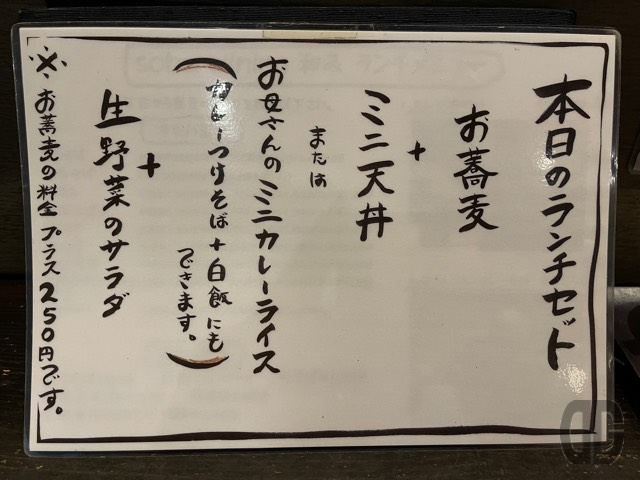 本日のランチセット
お蕎麦
+
ミニ天丼
または
お母さんのミニカレーライス
(カレーつけそば+白飯にも
できます。)
+
生野菜のサラダ
※お蕎麦の料金プラス250円です。